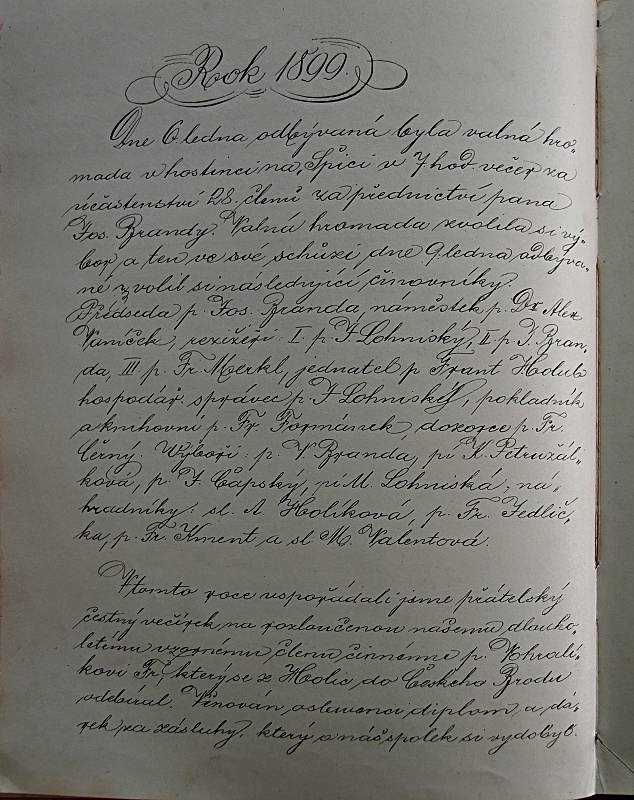 Rok 1899.
Dne 6 ledna odbývaná byla valná hro„
mada v hostinci na „Špici v 7 hod. večer za
účastenství 28. členů za přednictví pana
Jos. Brandy. Valná hromada zvolila si vý„
bor, a ten ve své schůzi, dne 9. ledna odbýva„
né zvolil si následující činovníky.
Předseda p. Jos. Branda, náměstek p. Dr. Alex
Vaníček, režiséři I. p. J Lohniský, II p. J. Bran„
da, III p. Fr. Merkl, jednatel p Frant Holub
hospodář. správce p. J Lohniský, pokladník
a knihovní p. Fr. Formánek, dozorce p. Fr.
Černý. Výboři: p. V. Branda, pí K. Petružál„
ková, p. J. Čapský, pí M. Lohniská, ná„
hradníky: sl. A. Holíková, p. Fr. Jedlič„
ka, p. Fr. Kment a sl M. Valentová.
V tomto roce uspořádali jsme přátelský
čestný večírek na rozloučenou našemu dlouho„
letému vzornému členu činnému p. Vohralí„
kovi Fr. který se z Holic do Českého Brodu
odebíral. Věnován oslavenci diplom a dá„
rek za zásluhy, který o náš spolek si vydobyl.